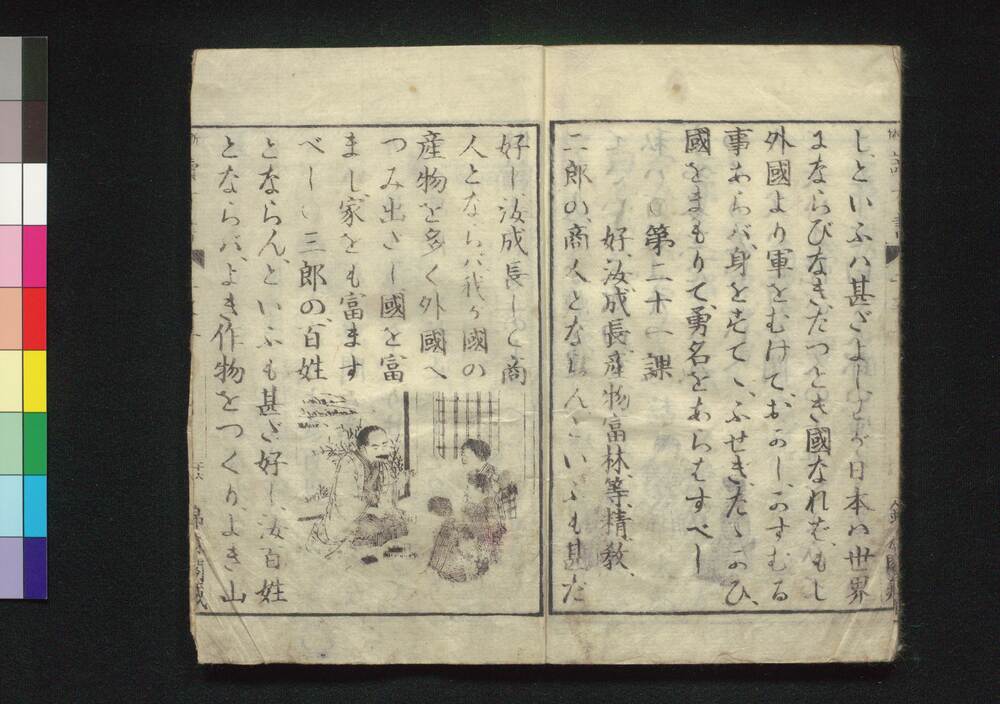 し、といふハ甚ざよしわが日本ハ世界
にならびなき、だつとき國なれバ、もし
外國より軍をむけて、おかし、かすむる
事あらバ、身をすてゝ、ふせぎたゝかひ、
國をまもりて、勇名をあらはすべし
第二十一課
好、汝、成長、産物、富、林、等、精、教、
二郎の、商人とならんといふも甚だ
好し、汝成長して商
人とならバ、我が國の
産物を多く外國へ
つみ出さし、國を富
まし、家をも富ます
べし、三郎の、百姓
とならん、といふも甚ざ好し、汝百姓
とならバ、よき作物をつくり、よき山